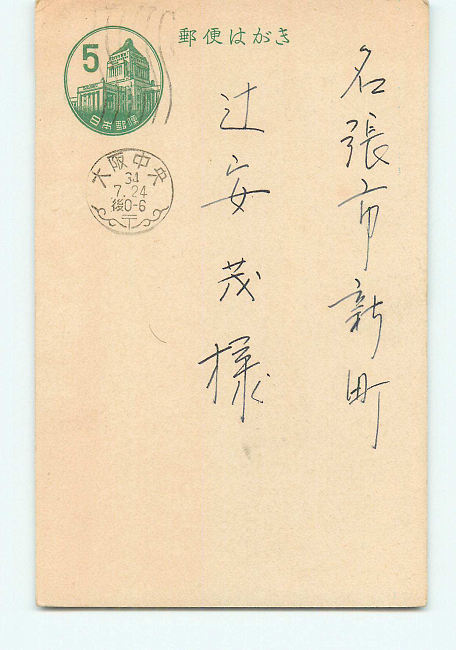 郵便はがき
5
日本郵便
大阪中央
34
7.24
後0-6
〒
名張市新町
辻安茂様